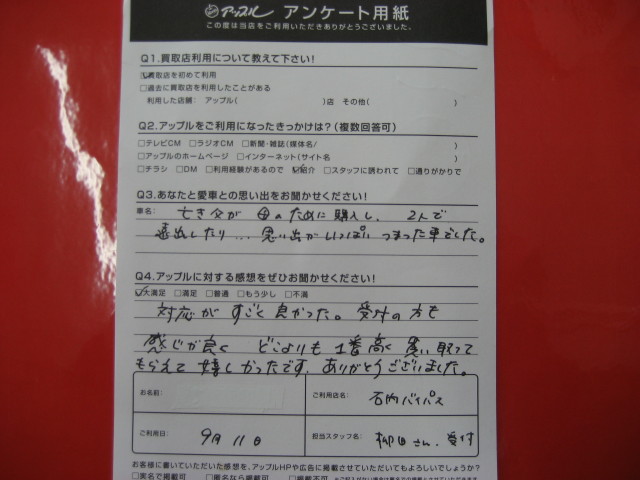 アップル アンケート用紙
この度は当店をご利用いただきありがとうございました。
Q1.買取店利用について教えて下さい!
☑買取店を初めて利用
□過去に買取店を利用したことがある
利用した店舗: アップル( )店 その他( )
Q2.アップルをご利用になったきっかけは?(複数回答可)
□テレビCM □ラジオCM □新聞・雑誌(媒体名/ )
□アップルのホームページ □インターネット(サイト名 )
□チラシ □DM □利用経験があるので ☑紹介 □スタッフに誘われて □通りがかりで
Q3.あなたと愛車との思い出をお聞かせください!
車名: 亡き父が 母のために購入し、 2人で
遠出したり... 思い出がいっぱい つまった車でした。
Q4.アップルに対する感想をぜひお聞かせください!
☑大満足 □満足 □普通 □もう少し □不満
対応が すごく 良かった。 受付の方も
感じが良く どこよりも 1番高く 買い取って
もらえて 嬉しかったです。ありがとうございました。
お名前: ご利用店名: 石内バイパス
ご利用日: 9月11日 担当スタッフ名: 柳田さん、受付
お客様に書いていただいた感想を、アップルHPや広告に掲載させていただいてもよろしいでしょうか?
□実名で掲載可 □匿名なら掲載可 □掲載不可